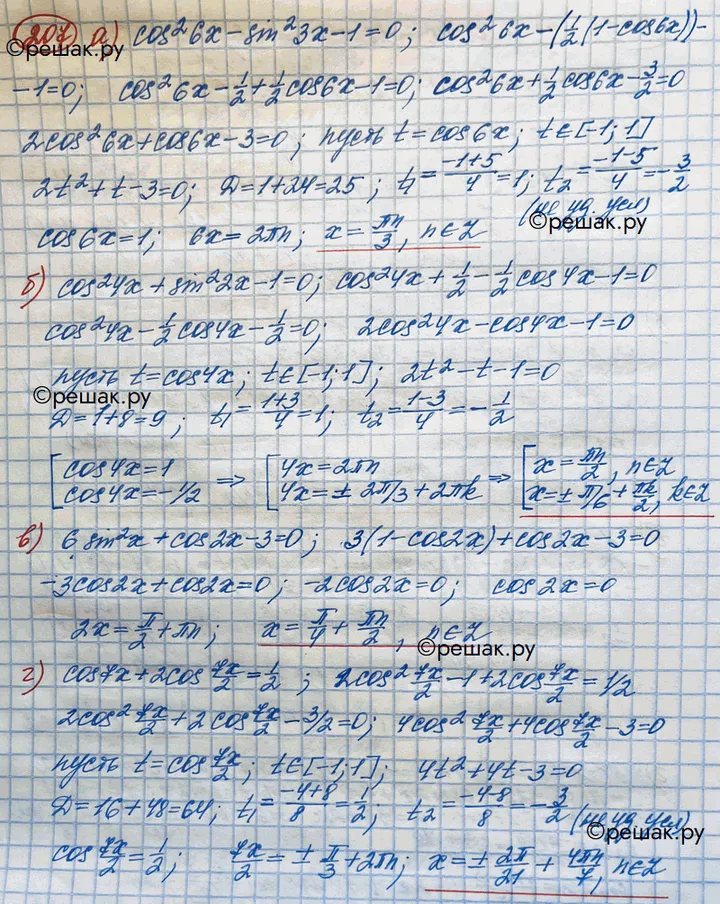 207) а) cos²6x - sin²3x - 1 = 0; cos²6x - (½(1 - cos6x)) -
©решак.ру
- 1 = 0; cos²6x - ½ + ½cos6x - 1 = 0; cos²6x + ½cos6x - 3/2 = 0
2cos²6x + cos6x - 3 = 0; пусть t = cos6x; t∈[-1; 1]
2t² + t - 3 = 0; D = 1 + 24 = 25; t₁ = (-1+5)/4 = 1; t₂ = (-1-5)/4 = -3/2
(не уд. усл)
cos6x = 1; 6x = 2πn; x = πn/3, n∈Z
©решак.ру
б) cos²4x + sin²2x - 1 = 0; cos²4x + ½ - ½cos4x - 1 = 0
cos²4x - ½cos4x - ½ = 0; 2cos²4x - cos4x - 1 = 0
пусть t = cos4x; t∈[-1; 1]; 2t² - t - 1 = 0
©решак.ру
D = 1 + 8 = 9; t₁ = (1+3)/4 = 1; t₂ = (1-3)/4 = -½
[cos4x = 1 ⇒ [4x = 2πn ⇒ [x = πn/2, n∈Z
cos4x = -1/2 4x = ± 2π/3 + 2πk x = ± π/6 + πk/2, k∈Z
в) 6sin²x + cos2x - 3 = 0; 3(1 - cos2x) + cos2x - 3 = 0
-3cos2x + cos2x = 0; -2cos2x = 0; cos2x = 0
2x = π/2 + πn; x = π/4 + πn/2, n∈Z
©решак.ру
г) cos7x + 2cos 7x/2 = ½; 2cos² 7x/2 - 1 + 2cos 7x/2 = 1/2
2cos² 7x/2 + 2cos 7x/2 - 3/2 = 0; 4cos² 7x/2 + 4cos 7x/2 - 3 = 0
пусть t = cos 7x/2; t∈[-1; 1]; 4t² + 4t - 3 = 0
D = 16 + 48 = 64; t₁ = (-4+8)/8 = ½; t₂ = (-4-8)/8 = -3/2 (не уд. усл)
©решак.ру
cos 7x/2 = ½; 7x/2 = ± π/3 + 2πn; x = ± 2π/21 + 4πn/7, n∈Z